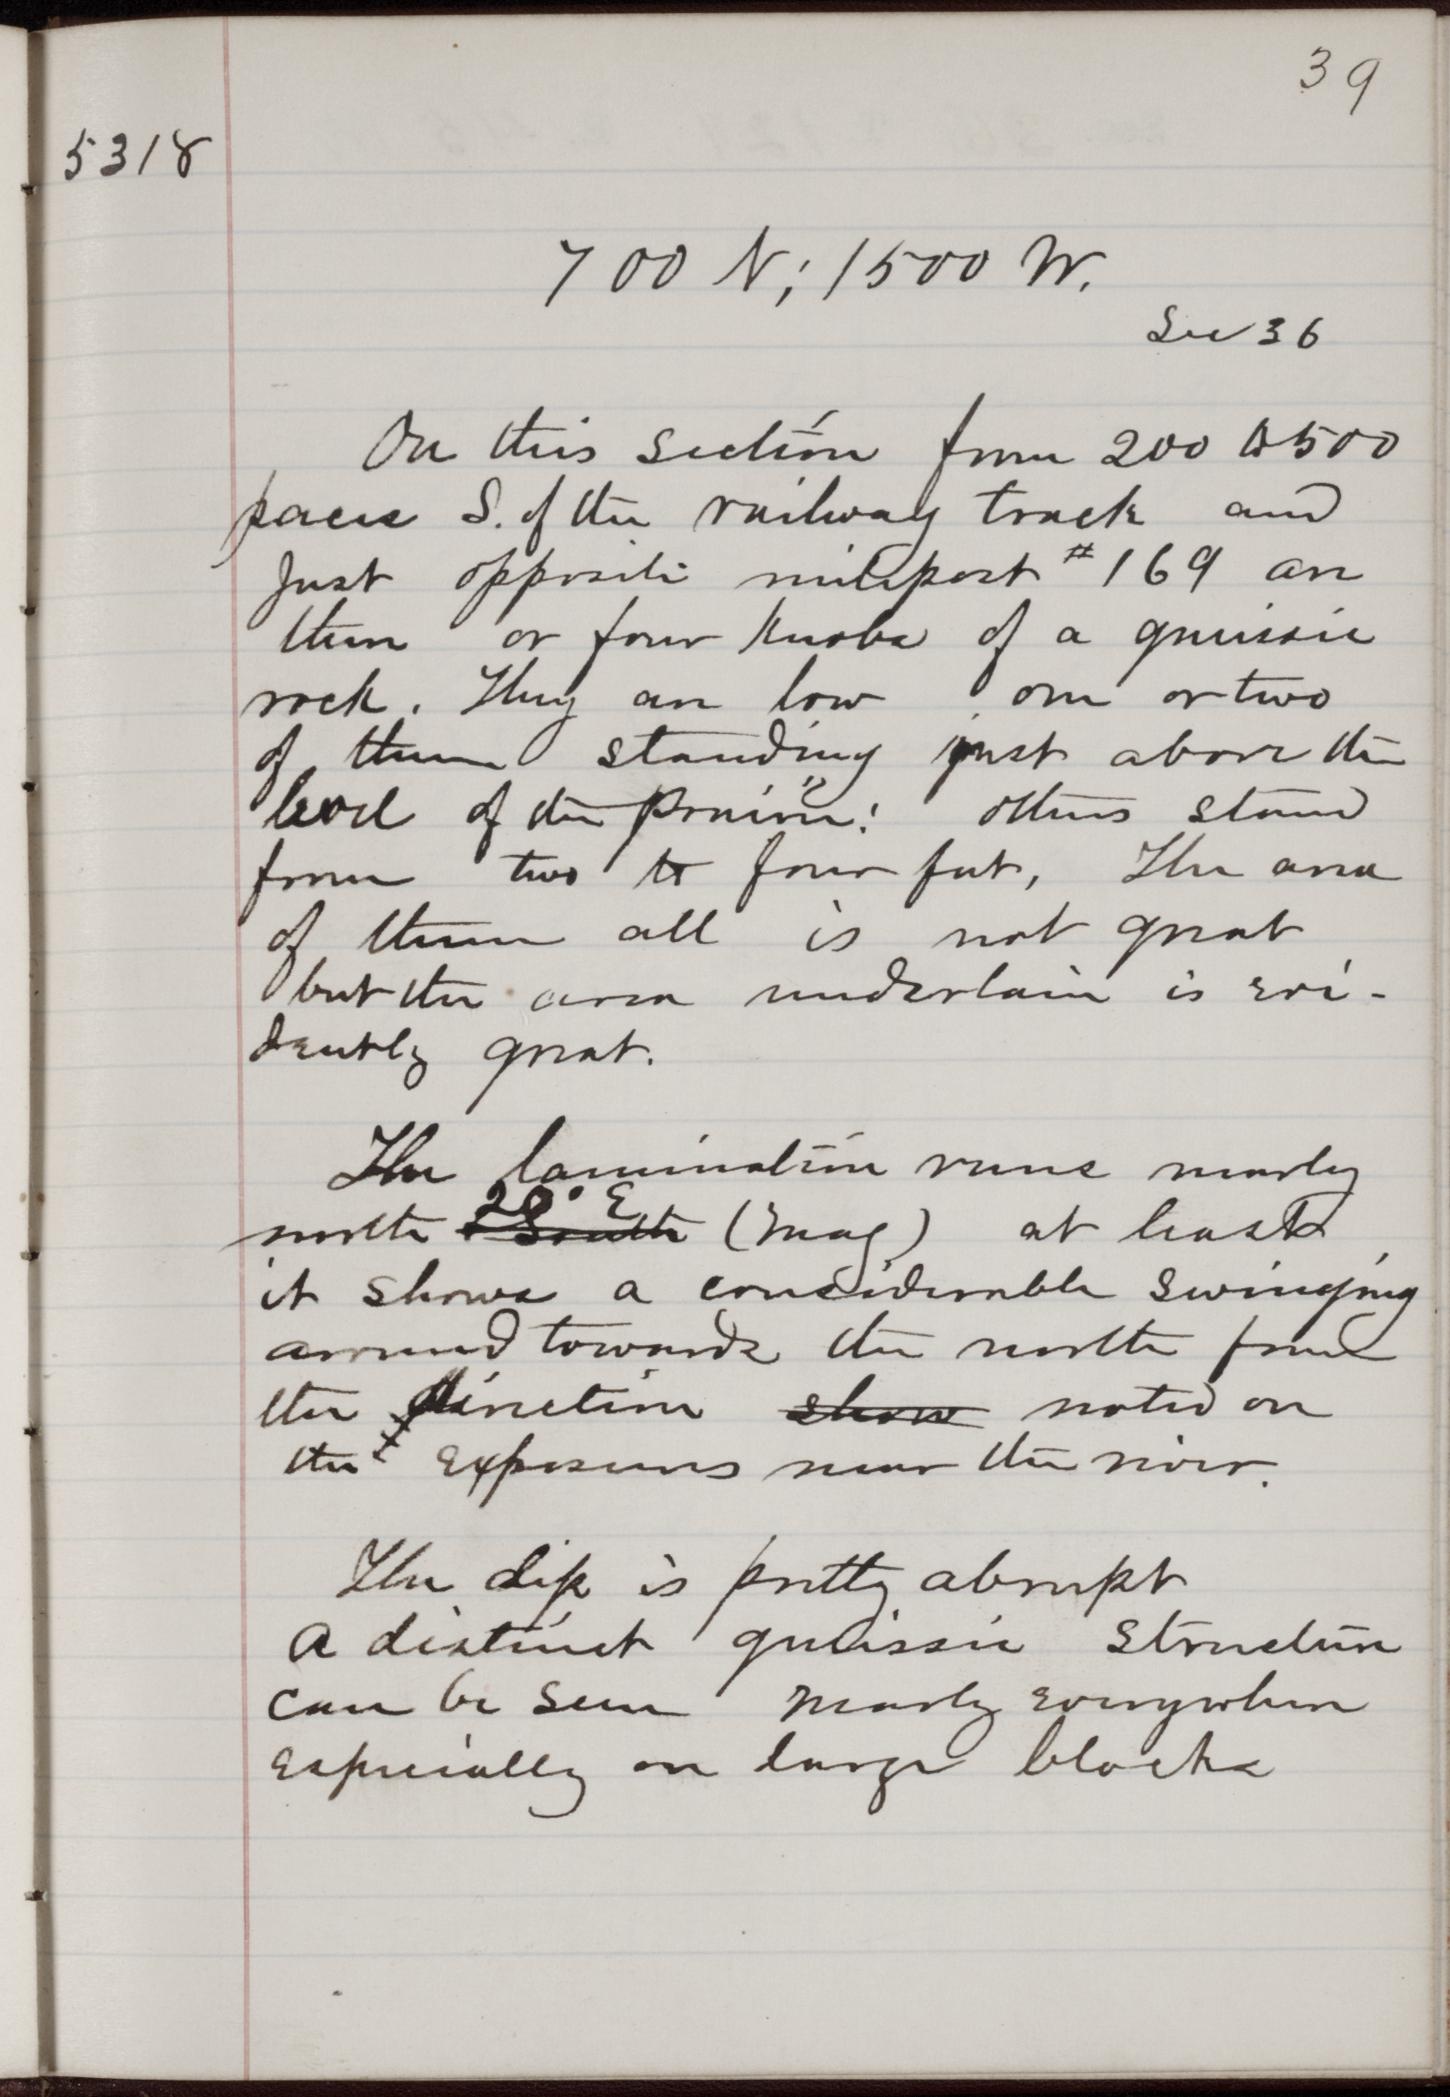 39
5318
700 N; 1500 W.
Sec 36
On this section from 200 to 500
paces S. of the railway track and
just opposite milepost #169 are
three or four knobs of a gneissic
rock. They are low, one or two
of them standing just above the
level of the prairie: others stand
from two to four feet, The area
of them all is not great
but the area underlain is evi-
dently great.
The lamination runs nearly
20° E
north & South (mag) at least
it shows a considerable swinging
around towards the north from
the direction show noted on
the exposures near the river.
The dip is pretty abrupt
A distinct gneissic structure
can be seen nearly everywhere
especially on large blocks